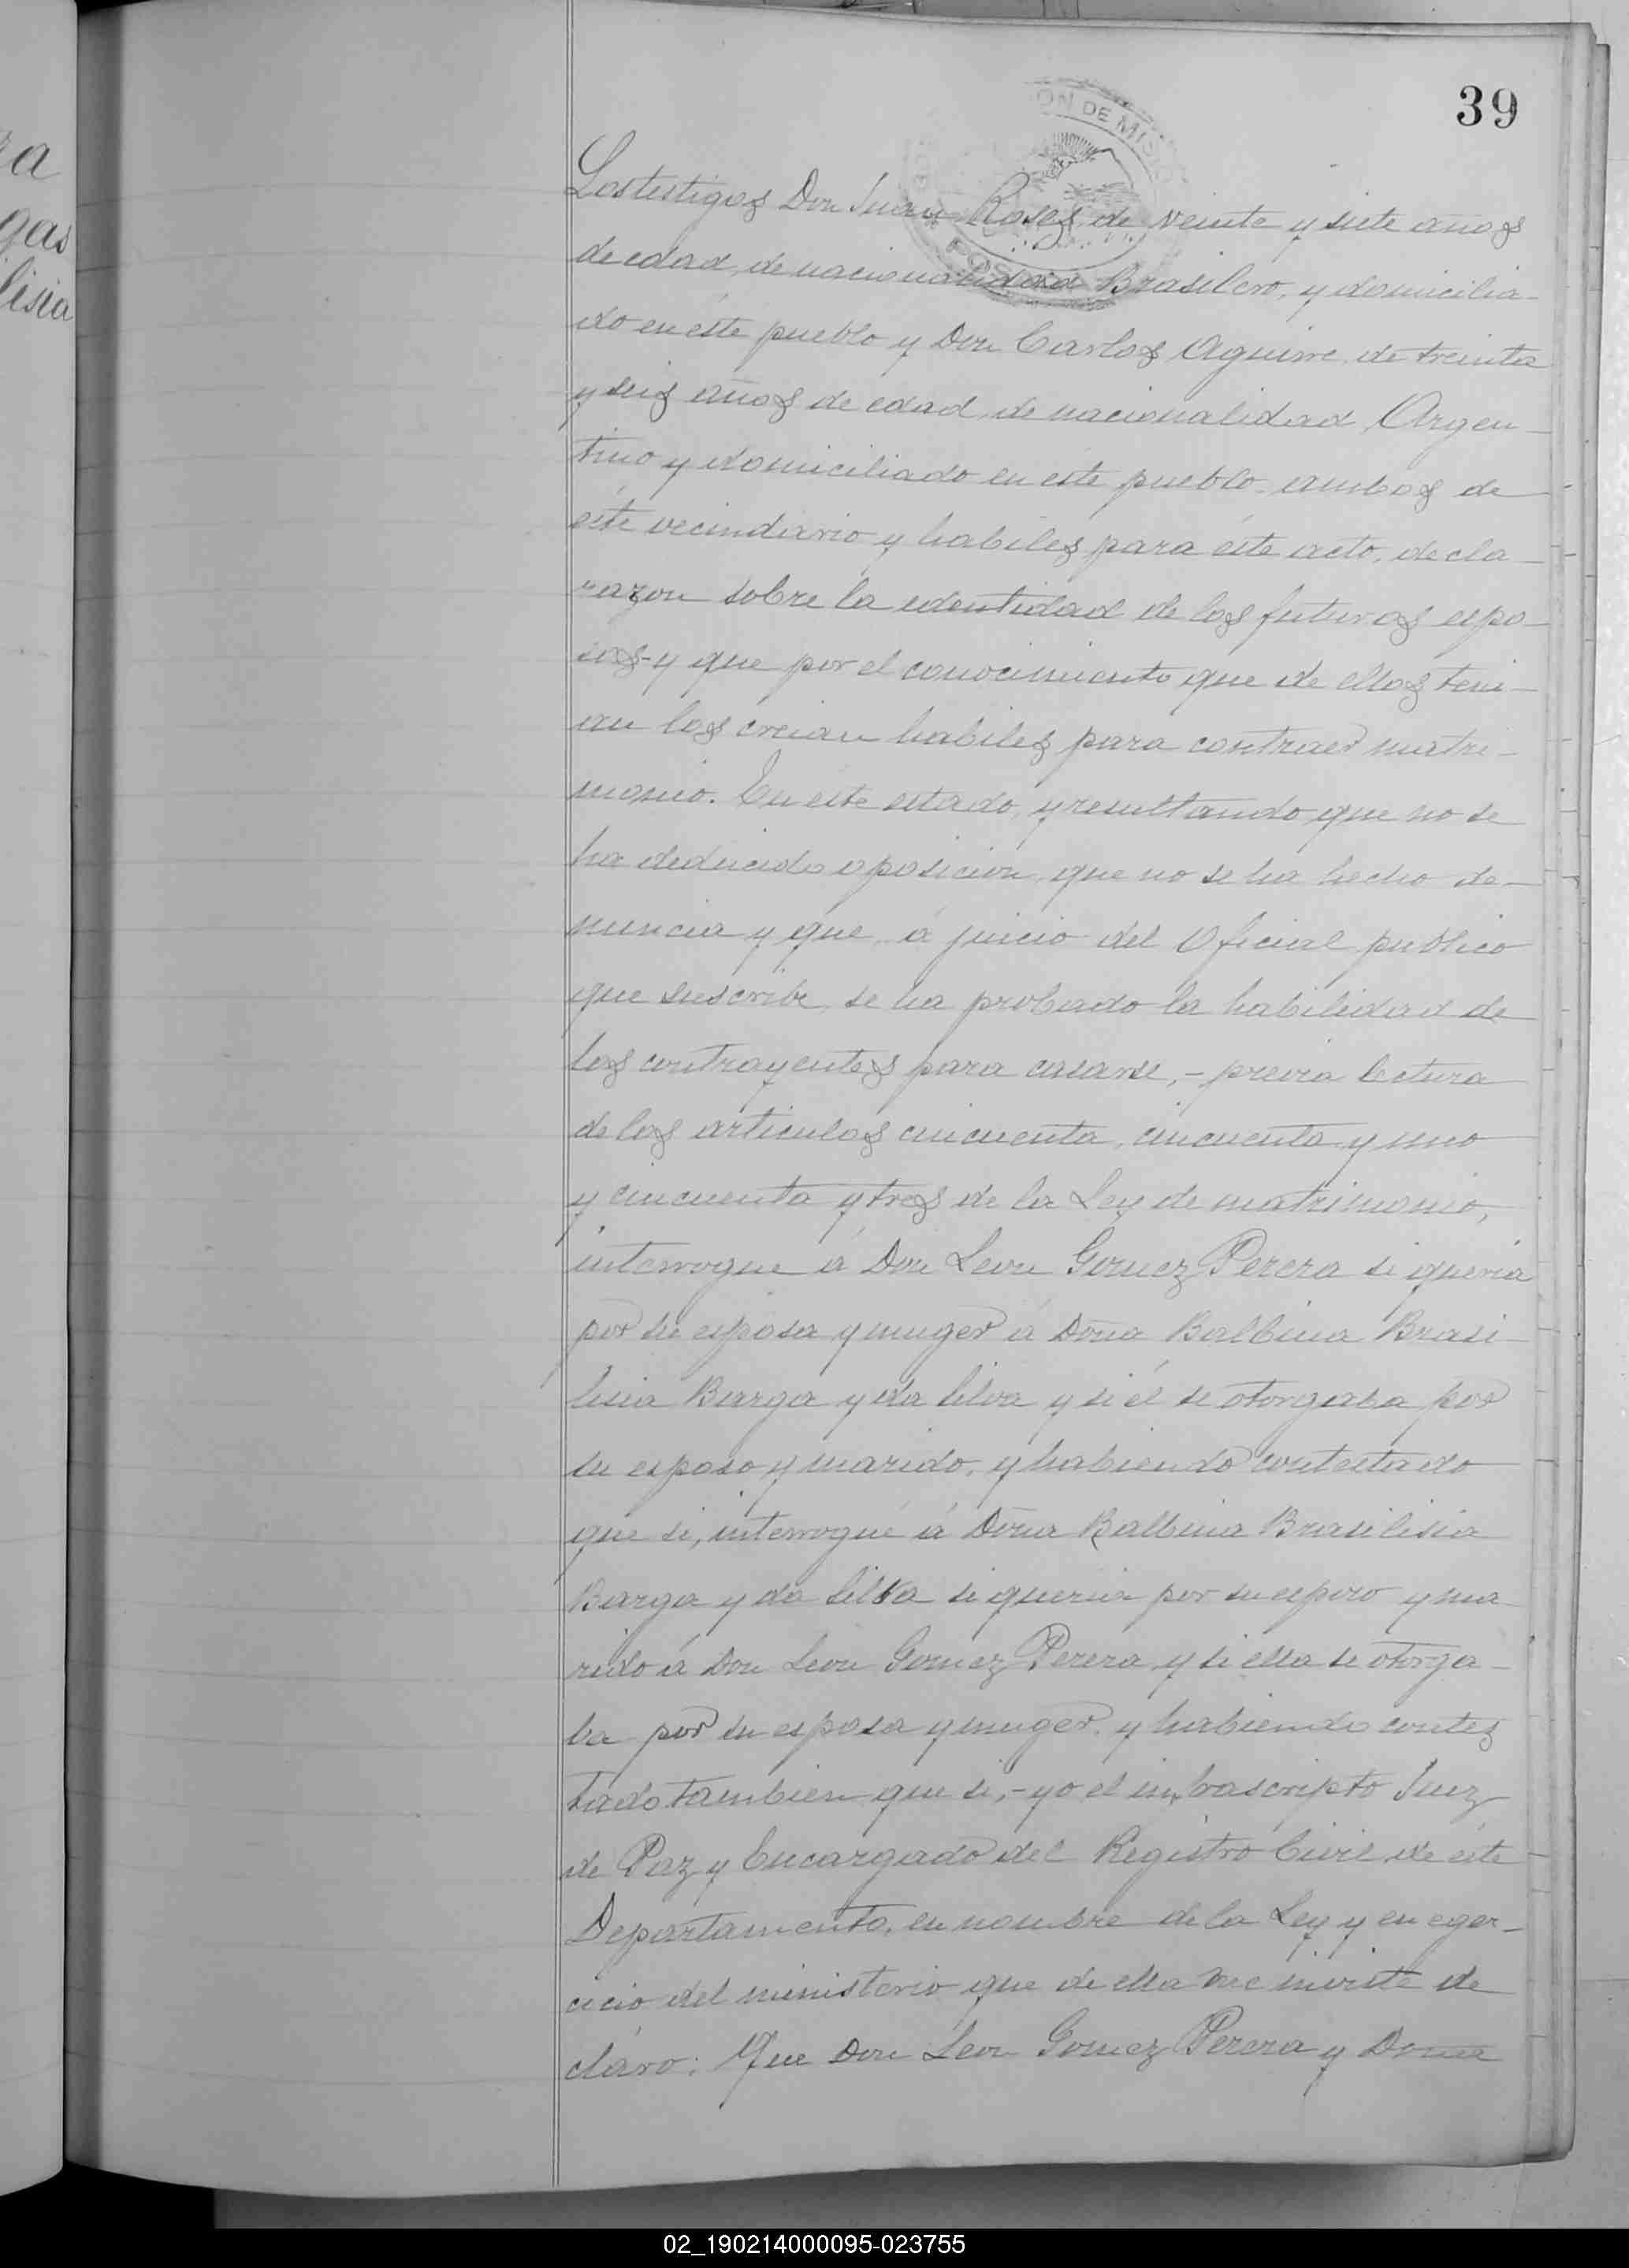 ra
gas
lisia
39
ON DE MIS
Los testigos Don Juan Roses, de veinte y siete años
de edad, de nacionalidad Brasilero, y domicilia-
do en éste pueblo y Don Carlos Aguirre, de treinta
y seis años de edad, de nacionalidad Argen-
tino y domiciliado en éste pueblo, ambos de
éste vecindario y habiles para éste acto, decla-
razon sobre la identidad de los futuros espo-
sos- y que por el conocimiento que de ellos teni-
an los creian habiles para contraer matri-
monio. En este estado, y resultando que no se
ha deducido oposicion, que no se ha hecho de-
nuncia y que, á juicio del Oficial publico
que suscribe, se ha probado la habilidad de
los contrayentes para casarse, - previa lectura
de los articulos cincuenta, cincuenta y uno
y cincuenta y tres de la Ley de matrimonio,
interrogue á Don Leon Gomez Perera si queria
por su esposa y muger á Doña Balbina Brasi-
lisia Barga y da Silva y si él se otorgaba por
su esposo y marido, y habiendo contestado
que si, interrogué á Doña Balbina Brasilisia
Barga y da Silva si queria por su esposo y ma-
rido á Don Leon Gomez Perera y si ella se otorga-
ba por su esposa y muger, y habiendo contes
tado tambien que si, - yo el infrascripto Juez
de Paz y Encargado del Registro Civil de éste
Departamento, en nombre de la Ley y en eger-
cicio del ministerio que de ella me inviste de
claro: Que Don Leon Gomez Perera y Doña
02_190214000095-023755